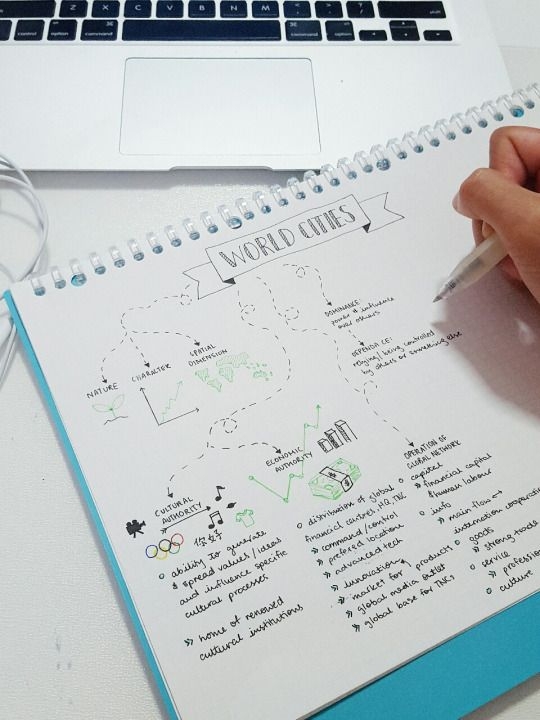 Z
X
C
V
B
N
M
control
option
command
command
option
shift
WORLD CITIES
DOMINANCE:
power & influence
over others
DEPENDANCE:
relying / being controlled
by others or something else
NATURE
CHARACTER
SPATIAL
DIMENSION
CULTURAL
AUTHORITY
你好
ability to generate
& spread values / ideas
and influence specific
cultural processes
» home of renowned
cultural institutions
ECONOMIC
AUTHORITY
distribution of global
financial centres, HQ TNC
» command/control
» preferred location
» advanced tech
» innovation
» market for products
» global media outlet
» global base for TNCs
OPERATION OF
GLOBAL NETWORK
capital
» financial capital
& human labour
info
» main flow →
goods
» strong trade
service
» profession
culture